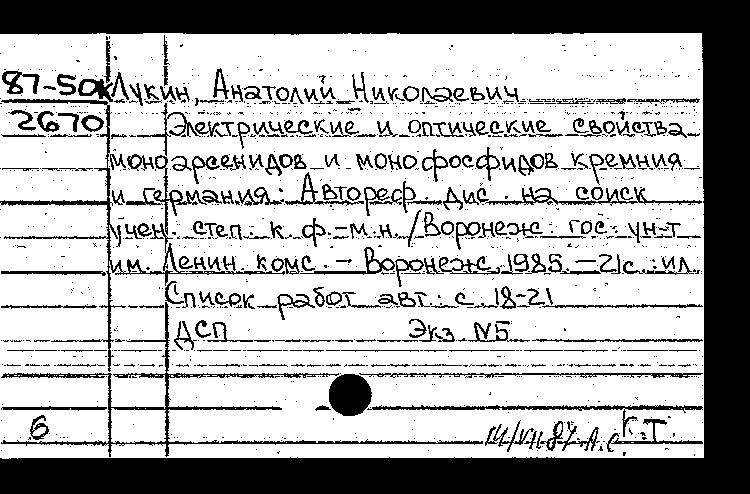 87-50к Лукин, Анатолий Николаевич
2670 Электрические и оптические свойства
моноарсенидов и монофосфидов кремния
и германия: Автореф. дис. на соиск
учен. степ. к. ф.-м.н. /Воронеж. гос. ун-т
им. Ленин. комс. - Воронеж, 1985. - 21с.: ил.
Список работ авт.: с. 18-21
ДСП Экз. N5
6 А.С. К.Т.